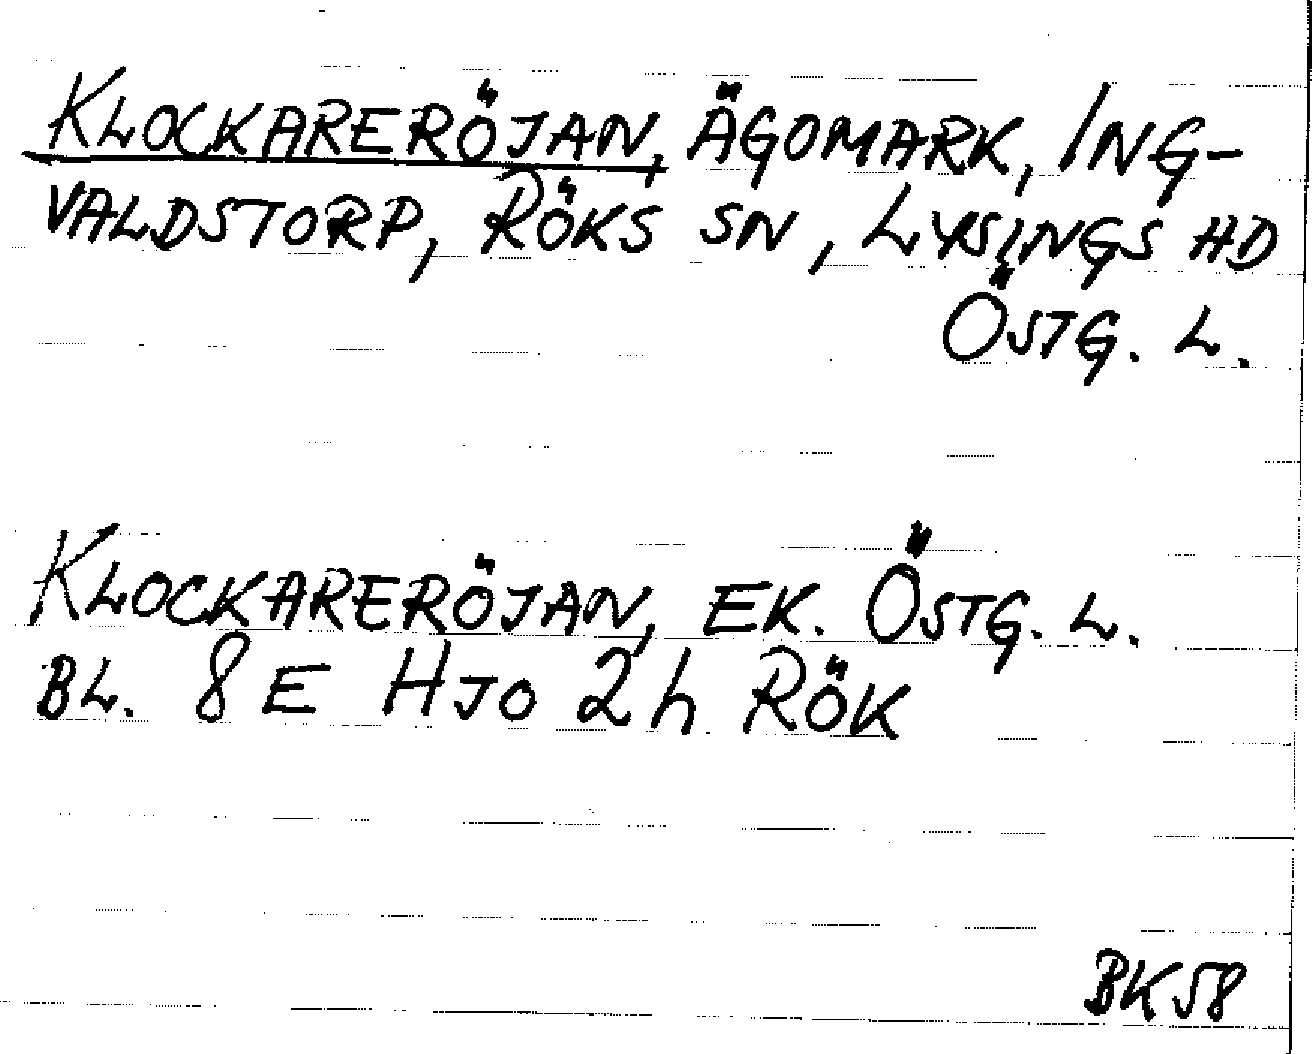 KLOCKARERÖJAN, ÄGOMARK, ING-
VALDSTORP, RÖKS SN, LYSINGS HD
ÖSTG. L.
KLOCKARERÖJAN, EK. ÖSTG. L.
BL. 8 E HJO 2h RÖK
BK58